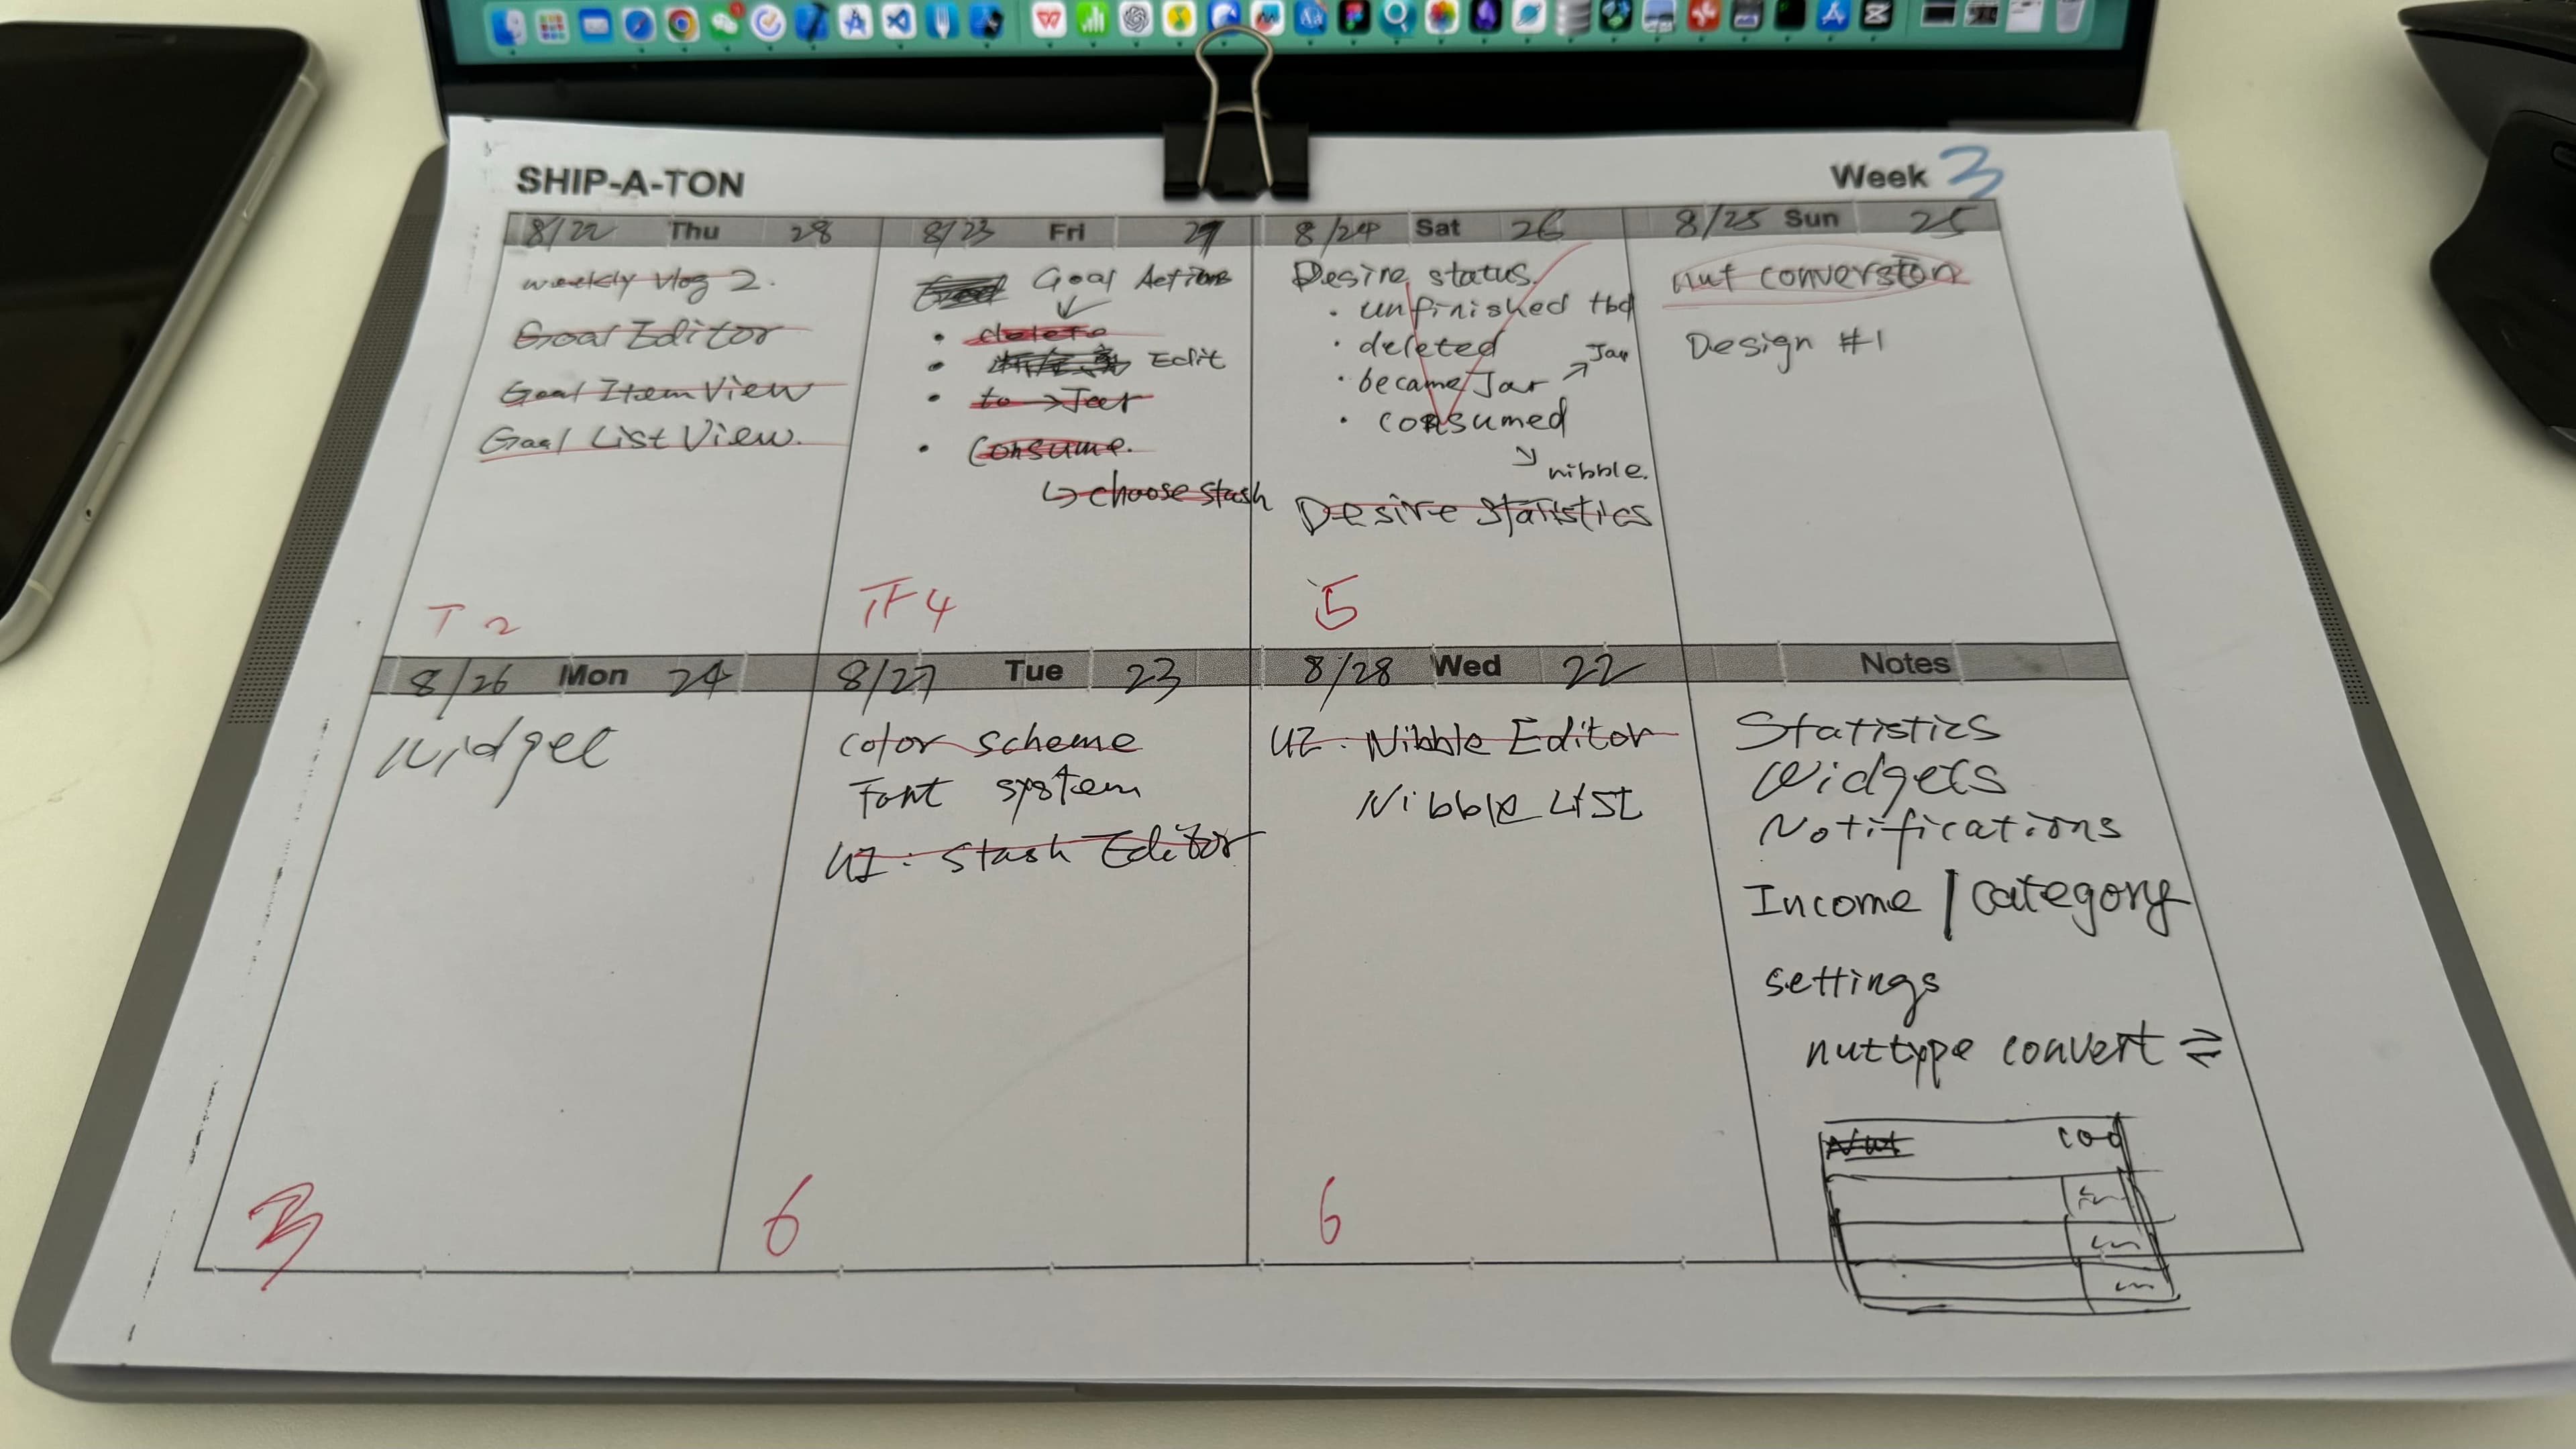 SHIP-A-TON
Week 3
8/22 Thu 28
8/23 Fri 27
8/24 Sat 26
8/25 Sun 25
weekly Vlog 2.
Goal Editor
Goal Item View
Goal List View.
T 2
Goal Actions
• delete
• Edit
• to → Jar
• Consume.
↳ choose stash
TF 4
Desire status.
• unfinished tbd
• deleted
• became Jar ↗ Jar
• consumed
↘ nibble.
Desire Statistics
5
nut conversion
Design #1
8/26 Mon 24
8/27 Tue 23
8/28 Wed 22
Notes
Widget
3
Color scheme
Font system
UI: Stash Editor
6
UI: Nibble Editor
Nibble List
6
Statistics
Widgets
Notifications
Income | Category
settings
nuttype convert ⇄
Nut